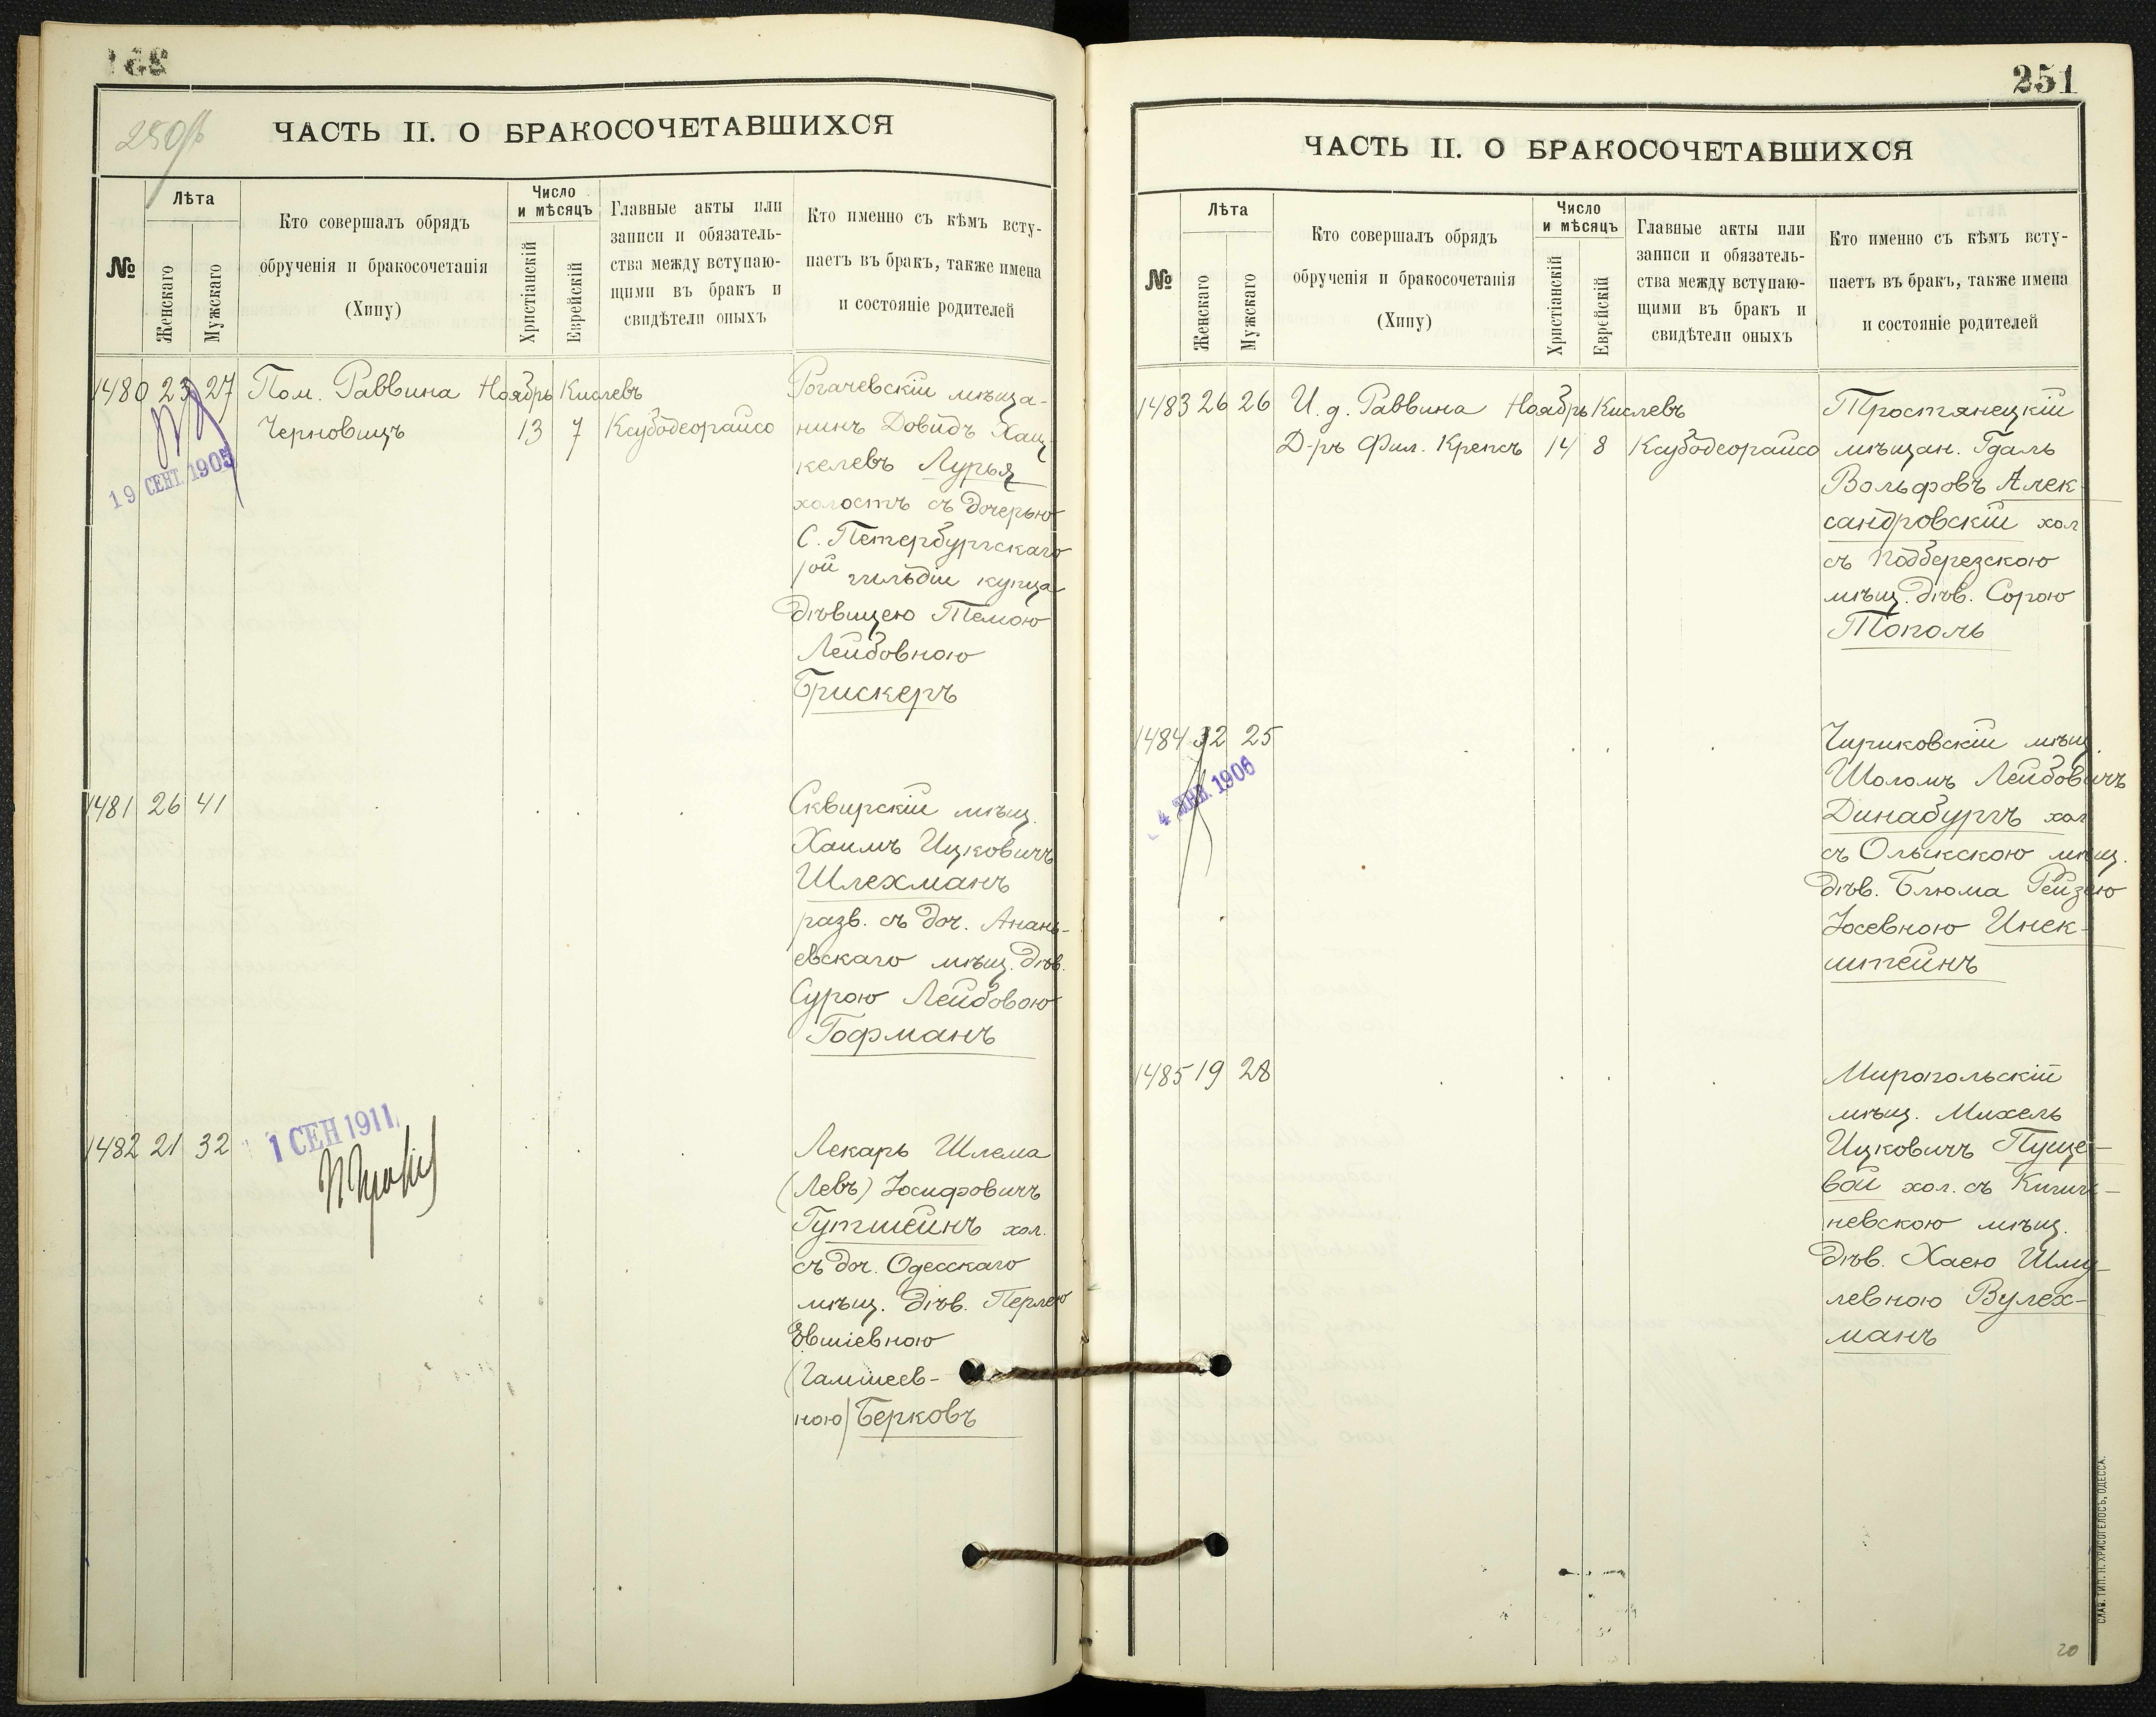 250 об
ЧАСТЬ II. О БРАКОСОЧЕТАВШИХСЯ
№
Лѣта
Женскаго
Мужскаго
Кто совершалъ обрядъ
обрученія и бракосочетанія
(Хипу)
Число
и мѣсяцъ
Христіанскій
Еврейскій
Главные акты или
записи и обязатель-
ства между вступаю-
щими въ бракъ и
свидѣтели оныхъ
Кто именно съ кѣмъ всту-
паетъ въ бракъ, также имена
и состояніе родителей
1480 23 27 Пом. Раввина Ноябрь Кислевъ Рогачевскій мѣща-
Черновицъ 13 7 Ксубодеорайсо нинъ Довидъ Хац-
19 СЕНТ. 1905
келевъ Лурья
холостъ съ дочерью
С. Петербургскаго
1ой гильдіи купца
дѣвицею Темою
Лейбовною
Брискеръ
1481 26 41 Сквирскій мѣщ.
Хаимъ Ицковичъ
Шлехманъ
разв. съ доч. Анань-
евскаго мѣщ. дѣв.
Сурою Лейбовою
Гофманъ
1 СЕН 1911
1482 21 32 Лекарь Шлема
(Левъ) Іосифовичъ
Гутштейнъ хол.
съ доч. Одесскаго
мѣщ. дѣв. Перлею
Овшіевною
(Гамшеев-
ною) Берковъ
251
ЧАСТЬ II. О БРАКОСОЧЕТАВШИХСЯ
№
Лѣта
Женскаго
Мужскаго
Кто совершалъ обрядъ
обрученія и бракосочетанія
(Хипу)
Число
и мѣсяцъ
Христіанскій
Еврейскій
Главные акты или
записи и обязатель-
ства между вступаю-
щими въ бракъ и
свидѣтели оныхъ
Кто именно съ кѣмъ всту-
паетъ въ бракъ, также имена
и состояніе родителей
1483 26 26 И. д. Раввина Ноябрь Кислевъ Тростянецкій
Д-ръ Фил. Крепсъ 14 8 Ксубодеорайсо мѣщан. Гдаль
Вольфовъ Алек-
сандровскій хол
съ Подберезскою
мѣщ. дѣв. Сорою
Тополь
1484 32 25 Чириковскій мѣщ.
4 ЯНВ. 1906
Шоломъ Лейбовичъ
Динабургъ хол
съ Олыкскою мѣщ.
дѣв. Блюма Рейзею
Іосевною Инек-
штейнъ
1485 19 28 Миропольскій
мѣщ. Михель
Ицковичъ Пуще-
вой хол. съ Киши-
невскою мѣщ.
дѣв. Хаею Шму-
левною Вулех-
манъ
СЛАВ. ТИП. Н. ХРИСОГЕЛОСЪ, ОДЕССА.
20